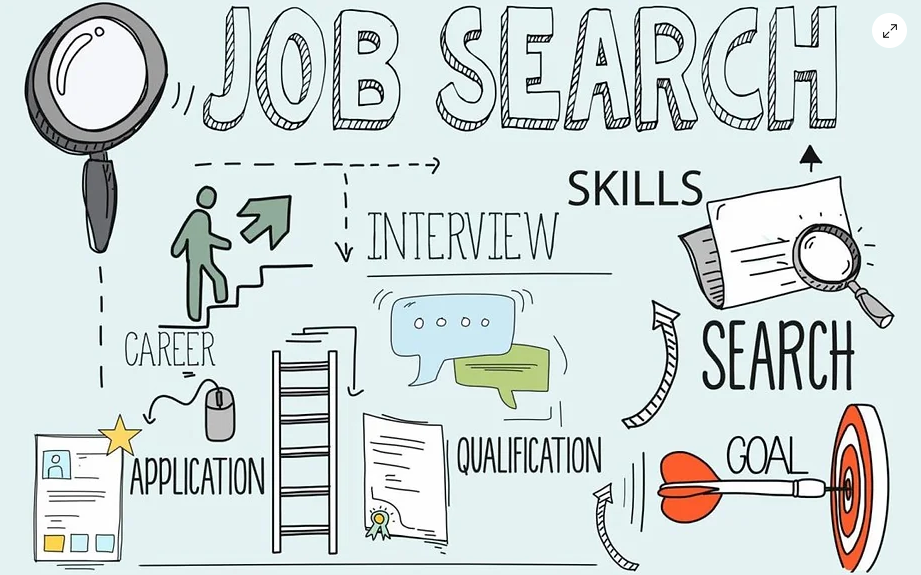 JOB SEARCH
SKILLS
INTERVIEW
CAREER
SEARCH
APPLICATION
QUALIFICATION
GOAL